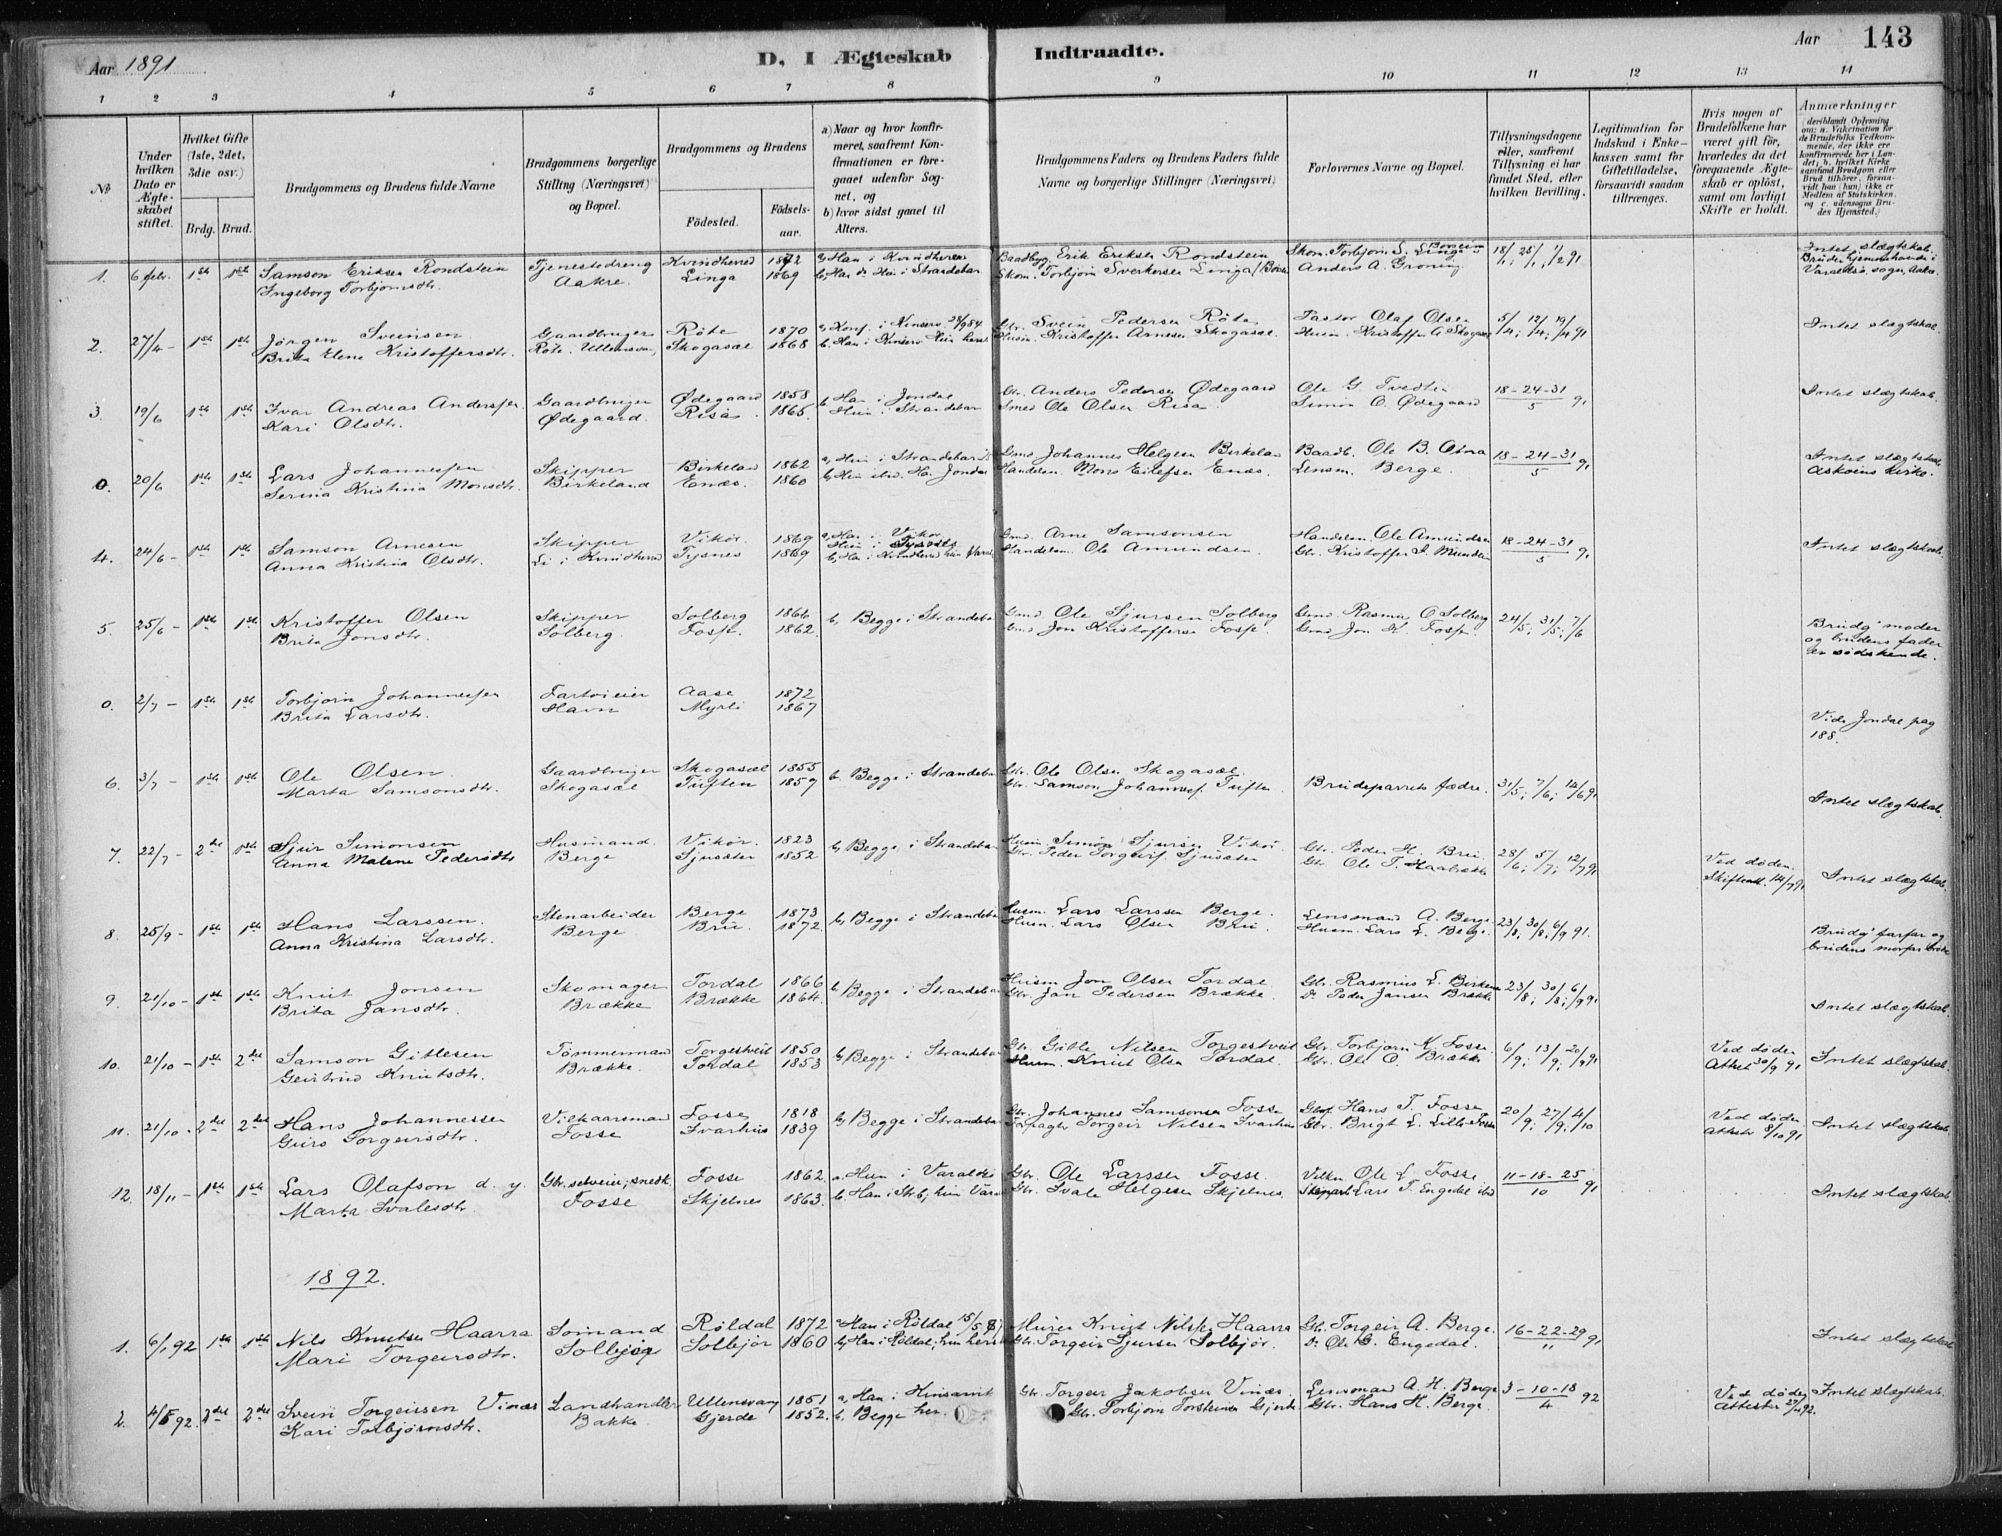 Aar 1891
D, I Ægteskab Indtraadte.
Aar 143
1 2 3 4 5 6 7 8 9 10 11 12 13 14
№
Under hvilken Dato er Ægte-skabet stiftet.
Hvilket Gifte (1ste, 2det, 3die osv.)
Brdg. Brud.
Brudgommens og Brudens fulde Navne
Brudgommens borgerlige Stilling (Næringsvei) og Bopæl.
Brudgommens og Brudens
Födested.
Födsels-aar.
a) Naar og hvor konfir-meret, saafremt Kon-firmationen er fore-gaaet udenfor Sog-net, og
b) hvor sidst gaaet til Alters.
Brudgommens Faders og Brudens Faders fulde Navne og borgerlige Stillinger (Næringsvei)
Forlovernes Navne og Bopæl.
Tillysningsdagene eller, saafremt Tillysning ei har fundet Sted, efter hvilken Bevilling.
Legitimation for Indskud i Enke-kassen samt for Giftetilladelse, forsaavidt saadan tiltrænges.
Hvis nogen af Brudefolkene har været gift før, hvorledes da det foregaaende Ægte-skab er oplöst, samt om lovligt Skifte er holdt.
Anmærkninger (deriblandt Oplysning om: a. Vakcination for de Brudefolks Vedkom-mende, der ikke ere konfirmerede her i Lan-det; b. hvilket Kirke-samfund Brudgom eller Brud tilhörer, forsaa-vidt han (hun) ikke er Medlem af Statskirken, og c. udensogns Bru-des Hjemsted.)
1. 6 febr. 1ste 1ste Samson Eriksen Rondstein Tjenestedreng Kvindherred 1872 a, Han i Kvindherred Baadbyg. Erik Eriksen Rondstein Skom. Torbjørn S. Linga 18/1, 25/1, 1/2 91 Intet slægtskab.
Ingeborg Torbjørnsdtr. Aakre. Linga 1869 b, Han & Hun i Strandebar Skom. Torbjørn Sverkersen Linga Anders A. Groning Brudens hjemmehørende i Varaldsø sogn, Aakre
2. 27/4 - 1ste 1ste Jørgen Sveinsen Gaardbruger Røte 1870 a, Konf. i Kinserv. 28/9 84 Gbr. Svein Pedersen Røte Pastor Olaf Olsen 5/4; 12/4; 19/4 91 Intet slægtskab.
Brita Elene Kristoffersdtr. Røte. Ullensvang Skogasæl 1868 b. Han i Kinserv Hun her Husm. Kristoffer Arnesen Skogasæl. Husm. Kristoffer A. Skogasæl
3. 19/6 1ste 1ste Ivar Andreas Andersen Gaardbruger Ødegaard 1858 b, Han i Jondal Gbr. Anders Pedersen Ødegaard Ole G. Tvedten 18-24-31/5 91 Intet slægtskab.
Kari Olsdtr. Ødegaard. Risa 1865. Hun i Strandebar Smed Ole Olsen Risa Simon O. Ødegaard
0. 20/6 1ste 1ste Lars Johannessen Skipper Birkeland 1862 a, Hun i Strandebar Gmd Johannes Helgesen Birkeland Baadb. Ole B. 18-24-31/5 91 Intet slægtskab.
Serina Kristina Monsdtr. Birkeland Enæs. 1860 b, Hun ibd. Han Jondal Handelsm. Mons Eilefsen Enæs. Lensm. Berge. Askøens kirke.
4. 24/6 - 1ste 1ste Samson Arnesen Skipper Vikør 1869 a, Han i Vikør Hun i Tysnes Gmd. Arne Samsonsen Handelsm. Ole Amundsen 18-24-31/5 91 Intet slægtskab.
Anna Kristina Olsdtr. Li i Kvindherred Tysnes 1869 b, Han i Kvindherred hun Varald. Handelsm. Ole Amundsen. Gbr. Kristoffer
5. 25/6 - 1ste 1ste Kristoffer Olsen Skipper Solberg 1866 b, Begge i Strandebar Gmd Ole Sjursen Solberg Gmd Rasmus O Solberg 24/5; 31/5; 7/6 Brudg' moder og brudens fader er sødskende.
Brita Jonsdtr. Solberg. Fosse. 1862. Gmd Jon Kristoffersen Fosse. Gmd Jon K. Fosse.
0. 2/7 - 1ste 1ste Torbjørn Johannessen Fartøieier Aase 1872
Brita Larsdtr. Havn Myrli 1867 Vide Jondal pag 188.
6. 3/7 - 1ste 1ste Ole Olsen Gaardbruger Skogasæl 1855 b, Begge i Strandebar Gbr. Ole Olsen Skogasæl. Brudeparrets fædre. 31/5; 7/6; 14/6 91
Marta Samsonsdtr. Skogasæl Tuften 1859 Gbr. Samson Johanness. Tuften Intet slægtskab.
7. 22/7 - 2det 1ste Sjur Simonsen Husmand. Vikør. 1823 b, Begge i Strandebar Husm. Simon Sjursen Vikør Gbr. Peder H. Bru 28/6; 5/7; 12/7 91 Ved døden.
Anna Malene Pedersdtr Berge Sjusæter 1852 Gbr. Peder Torgeirs. Sjusæter Gbr. Ole T. Skifteatt. 14/7 91 Intet slægtskab.
8. 25/9 - 1ste 1ste Hans Larssen. Stenarbeider Berge 1873 b, Begge i Strandebar Husm. Lars Larssen Berge. Lensmand A. Berge 23/8, 30/8, 6/9 91. Brudg' farfar og
Anna Kristina Larsdtr. Berge Bru. 1872. Husm. Lars Olsen Bru Husm. Lars L. Berge. brudens morfar brødre
9. 21/10 - 1ste 1ste Knut Jonsen Skomager Tordal 1866 b Begge i Strandebar Husm Jon Olsen Tordal Gbr. Rasmus L. Birkeland 23/8, 30/8, 6/9 91
Brita Jansdtr. Brække Brække 1864. Gbr. Jan Pedersen Brække Do Peder Jansen Brække Intet slægtskab.
10. 21/10 - 1ste 2det Samson Gitlesen Tømmermand Torgestveit 1850 b, Begge i Strandebar Gbr. Gitle Nilsen Torgestveit Gbr. Torbjørn K. Fosse. 6/9; 13/9; 20/9 91 Ved døden Intet slægtskab.
Geirtrud Knutsdtr. Brække. Tordal 1853 Husm. Knut Olsen Tordal. Gbr. Ole O. Brække Attest 30/9 91
11. 21/10 - 2det 2det Hans Johannessen Vilkaarsmand Fosse 1818 b, Begge i Strandebar Gbr. Johannes Samsonsen Fosse Hans T. Fosse 20/9; 27/9; 4/10 Ved døden
Guro Torgeirsdtr. Fosse Ivarhus 1839 Torgeir Nilsen Ivarhus Gbr. Brigt L. Lille-Fosse Attest 8/10 91 Intet slægtskab
12. 18/11 - 1ste 1ste Lars Olafson d. y. Gbr. selveier; snedk. Fosse 1862. a. Hun i Varaldsø Gbr. Ole Larssen Fosse. Vilkm. Ole L. Fosse 11-18-25/10 91
Marta Ivalesdtr. Fosse Skjelnes 1863. b. Han i Strb, hun Varal Gbr. Ivale Helgesen Skjelnes. Lars T. Engedal ibd Intet slægtskab.
1892.
1. 6/1 92 1ste 1ste Nils Knutsen Haarra Sømand Røldal 1872 a Han i Røldal 15/5 Murer Knut Nilsen Haarra Gbr. Torgeir A. Berge. 16-22-29/11 91 Intet slægtskab
Mari Torgeirsdtr. Solbjør Solbjør 1860 b, Han i Røldal; hun her Gbr. Torgeir Sjursen Solbjør. Do Ole G. Engedal.
2. 4/5 92. 2det 2det Svein Torgeirsen Vinæs Landhandler Ullensvang 1851 a, Han i Kinsarvik Gbr. Torgeir Jakobsen Vinæs. Lensmand A. H. Berge 3-10-18/4 92 Ved døden Intet slægtskab.
Kari Torbjørnsdtr. Bakke. Gjerde 1852. b. Begge her. Gbr. Torbjørn Torsteinsen Gjerde Gbr. Hans H. Berge. Attester 92.